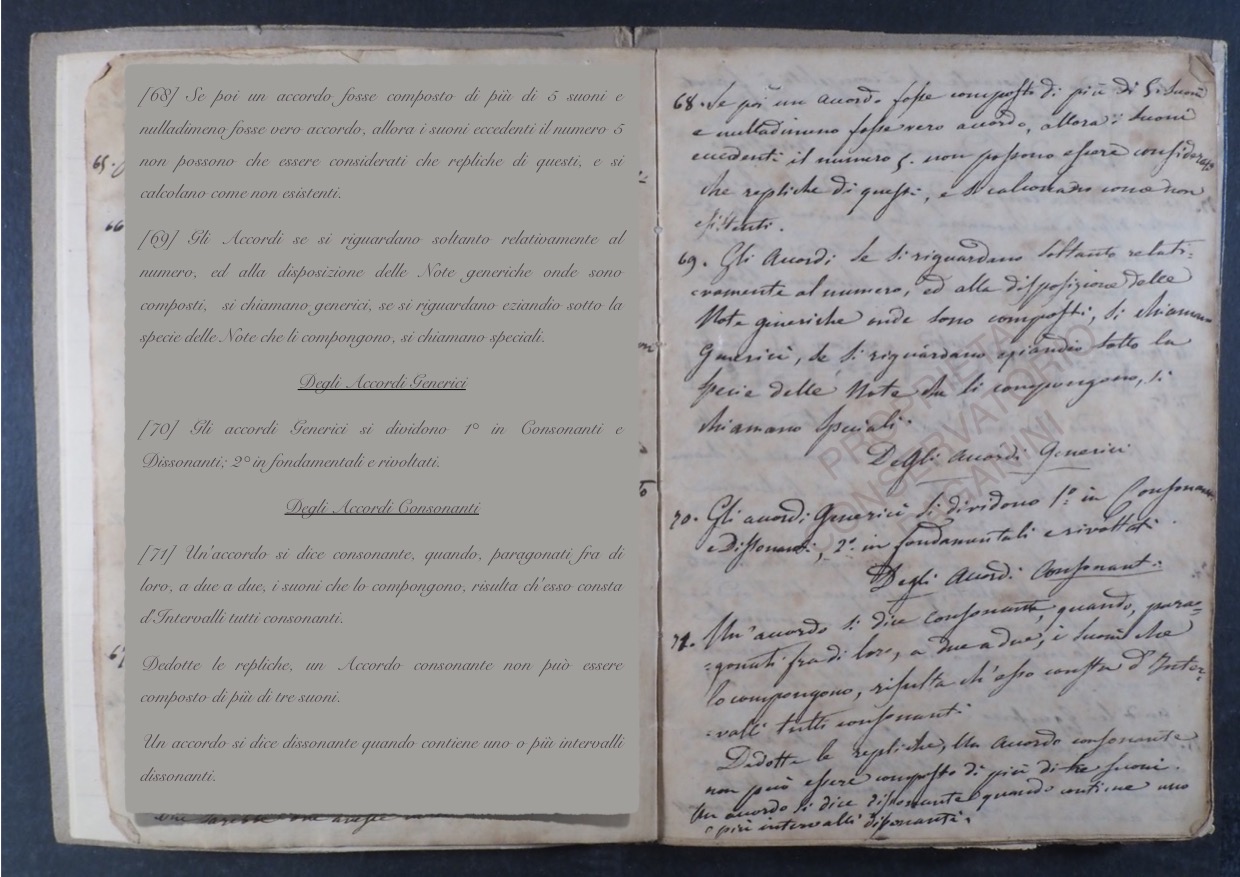 [68] Se poi un accordo fosse composto di più di 5 suoni e
nulladimeno fosse vero accordo, allora i suoni eccedenti il numero 5
non possono che essere considerati che repliche di questi, e si
calcolano come non esistenti.
[69] Gli Accordi se si riguardano soltanto relativamente al
numero, ed alla disposizione delle Note generiche onde sono
composti, si chiamano generici, se si riguardano eziandio sotto la
specie delle Note che li compongono, si chiamano speciali.
Degli Accordi Generici
[70] Gli accordi Generici si dividono 1° in Consonanti e
Dissonanti; 2° in fondamentali e rivoltati.
Degli Accordi Consonanti
[71] Un'accordo si dice consonante, quando, paragonati fra di
loro, a due a due, i suoni che lo compongono, risulta ch'esso consta
d'Intervalli tutti consonanti.
Dedotte le repliche, un Accordo consonante non può essere
composto di più di tre suoni.
Un accordo si dice dissonante quando contiene uno o più intervalli
dissonanti.
65.
66
67
68. Se poi un accordo fosse composto di più di 5. suoni
e nulladimeno fosse vero accordo, allora i suoni
eccedenti il numero 5. non possono essere considerati
che repliche di questi, e si calcolano come non
esistenti.
69. Gli Accordi se si riguardano soltanto relati=
vamente al numero, ed alla disposizione delle
Note generiche onde sono composti, si chiamano
Generici, se si riguardano eziandio sotto la
specie delle Note che li compongono, si
chiamano speciali.
Degli accordi Generici
70. Gli accordi Generici si dividono 1° in Consonanti
e Dissonanti, 2° in fondamentali e rivoltati.
Degli Accordi Consonanti
71. Un'accordo si dice consonante, quando, para=
=gonati fra di loro, a due a due, i suoni che
lo compongono, risulta ch'esso consta d'Inter=
=valli tutti consonanti
Dedotte le repliche, Un Accordo consonante
non può essere composto di più di tre suoni.
Un accordo si dice dissonante quando contiene uno
o più intervalli dissonanti.
PROPRIETA'
CONSERVATORIO
PAGANINI